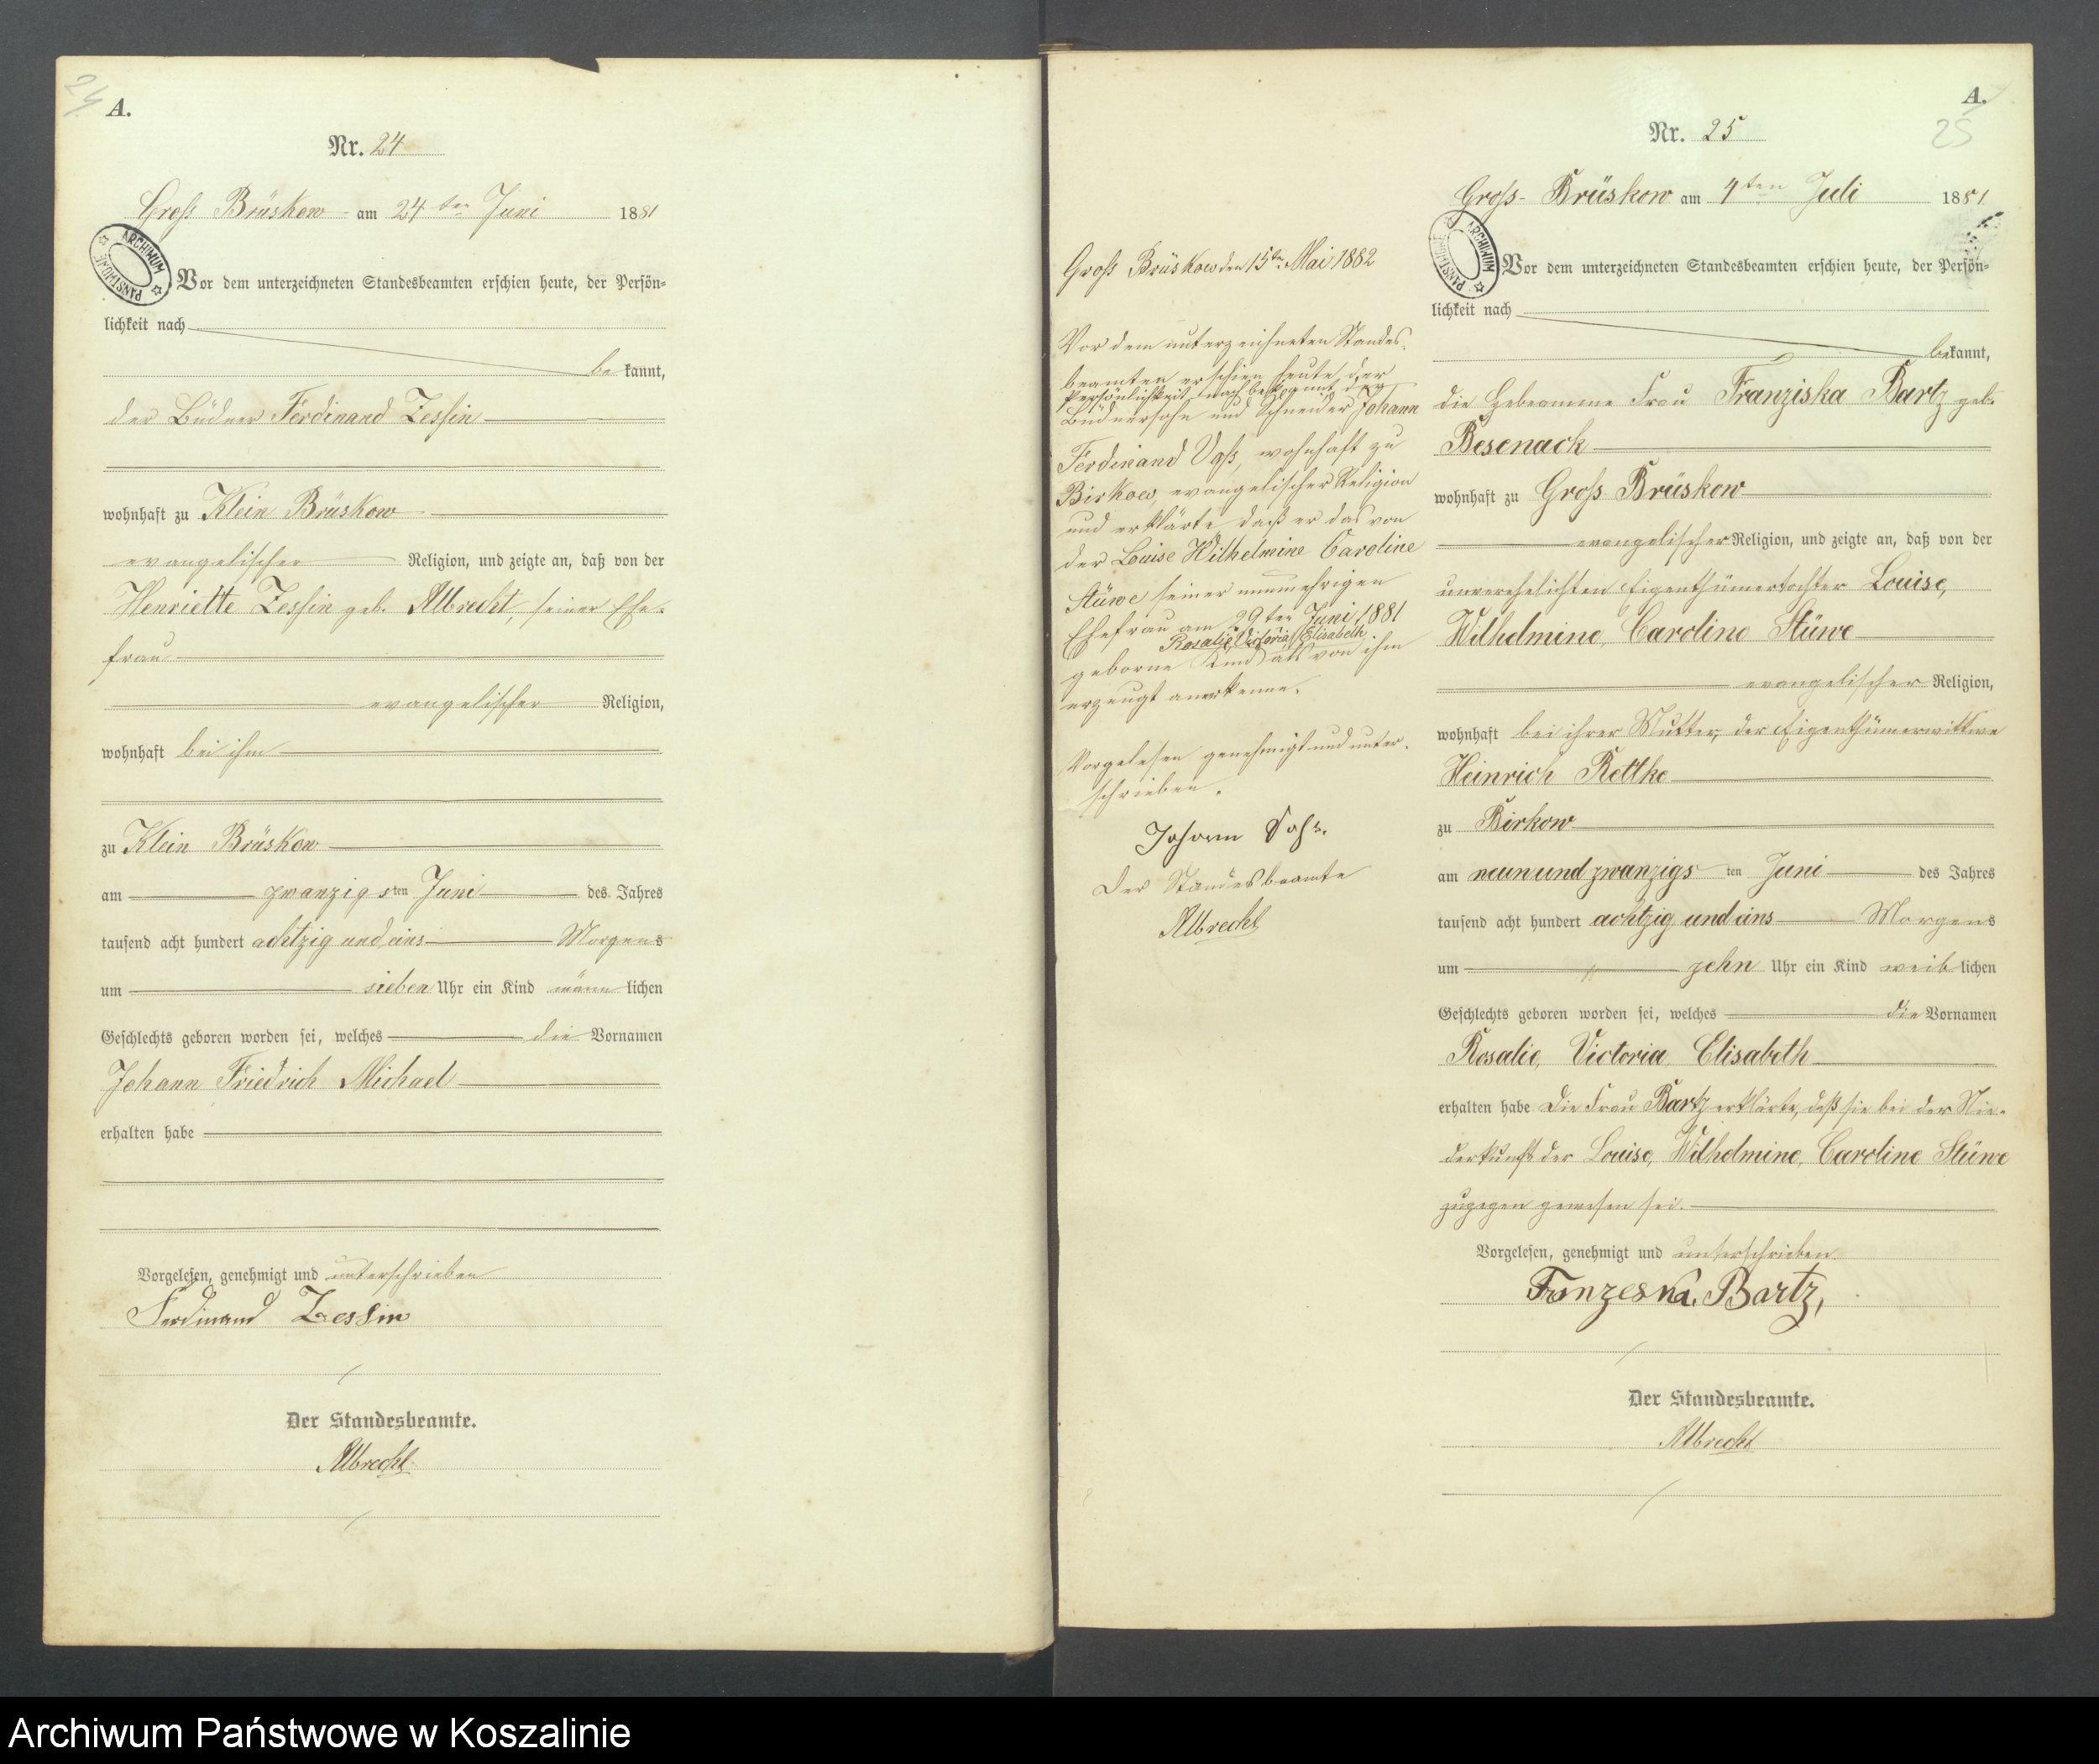 24
A.
Nr. 24
Gross Brüskow am 24ten Juni 1881
ARCHIWUM PAŃSTWOWE
Vor dem unterzeichneten Standesbeamten erschien heute, der Persön-
lichkeit nach
be kannt,
der Büdner Ferdinand Zessin
wohnhaft zu Klein Brüskow
evangelischer Religion, und zeigte an, daß von der
Henriette Zessin geb. Albrecht, seiner Ehe-
frau
evangelischer Religion,
wohnhaft bei ihm
zu Klein Brüskow
am zwanzigsten Juni des Jahres
tausend acht hundert achtzig und eins Morgens
um sieben Uhr ein Kind männ lichen
Geschlechts geboren worden sei, welches die Vornamen
Johann Friedrich Michael
erhalten habe
Vorgelesen, genehmigt und unterschrieben
Ferdinand Zessin
Der Standesbeamte.
Albrecht
Gross Brüskow den 15ten Mai 1882
Vor dem unterzeichneten Standes-
beamten erschien heute, der
Persönlichkeit nach bekannt, der
Büdnersohn und Schneider Johann
Ferdinand Voss, wohnhaft zu
Birkow, evangelischer Religion
und erklärte daß er das von
der Louise Wilhelmine Caroline
Stüwe seiner nunmehrigen
Ehefrau am 29ten Juni 1881
Rosalie Victoria Elisabeth
geborne Kind als von ihm
erzeugt anerkenne.
Vorgelesen genehmigt und unter-
schrieben.
Johann Voss.
Der Standesbeamte
Albrecht
A.
25
Nr. 25
Gross-Brüskow am 4ten Juli 1881
ARCHIWUM PAŃSTWOWE
Vor dem unterzeichneten Standesbeamten erschien heute, der Persön-
lichkeit nach
bekannt,
die Hebeamme Frau Franziska Bartz geb.
Besenack
wohnhaft zu Gross Brüskow
evangelischer Religion, und zeigte an, daß von der
unverehelichten Eigenthümertochter Louise,
Wilhelmine, Caroline Stüwe
evangelischer Religion,
wohnhaft bei ihrer Mutter, der Eigenthümerwittwe
Heinrich Rettke
zu Birkow
am neunundzwanzigs ten Juni des Jahres
tausend acht hundert achtzig und eins Morgens
um zehn Uhr ein Kind weib lichen
Geschlechts geboren worden sei, welches die Vornamen
Rosalie, Victoria, Elisabeth
erhalten habe Die Frau Bartz erklärte, daß sie bei der Nie-
derkunft der Louise, Wilhelmine, Caroline Stüwe
zugegen gewesen sei.
Vorgelesen, genehmigt und unterschrieben.
Franzeska Bartz,
Der Standesbeamte.
Albrecht
Archiwum Państwowe w Koszalinie